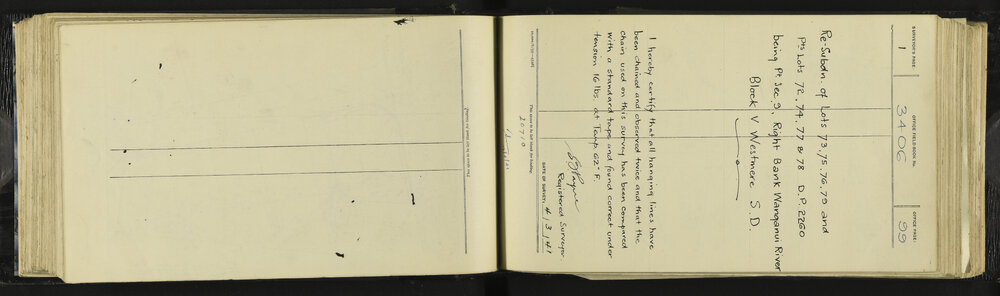 SURVEYOR'S PAGE:
1
OFFICE FIELD-BOOK No.
3406
OFFICE PAGE:
99
Re-Subdn. of Lots 73, 75, 76, 79 and
Pts Lots 72, 74, 77 & 78 D.P. 2260
being Pt Sec. 9, Right Bank Wanganui River
Block V Westmere S.D.
I hereby certify that all hanging lines have
been chained and observed twice and that the
chain used on this survey has been compared
with a standard tape and found correct under
tension 16 lbs. at Temp. 62° F.
Registered Surveyor.
DATE OF SURVEY: 4/3/41
20710